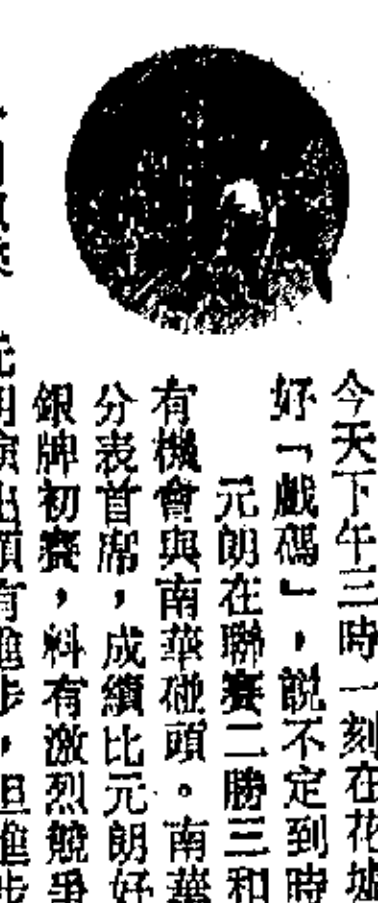 今天下午三時一刻在花墟
好「戲碼」，說不定到時
元朗在聯賽二勝三和
有機會與南華碰頭。南華
分表首席，成績比元朗好
銀牌初賽，料有激烈競爭
元朗演出頗有進步，但進步